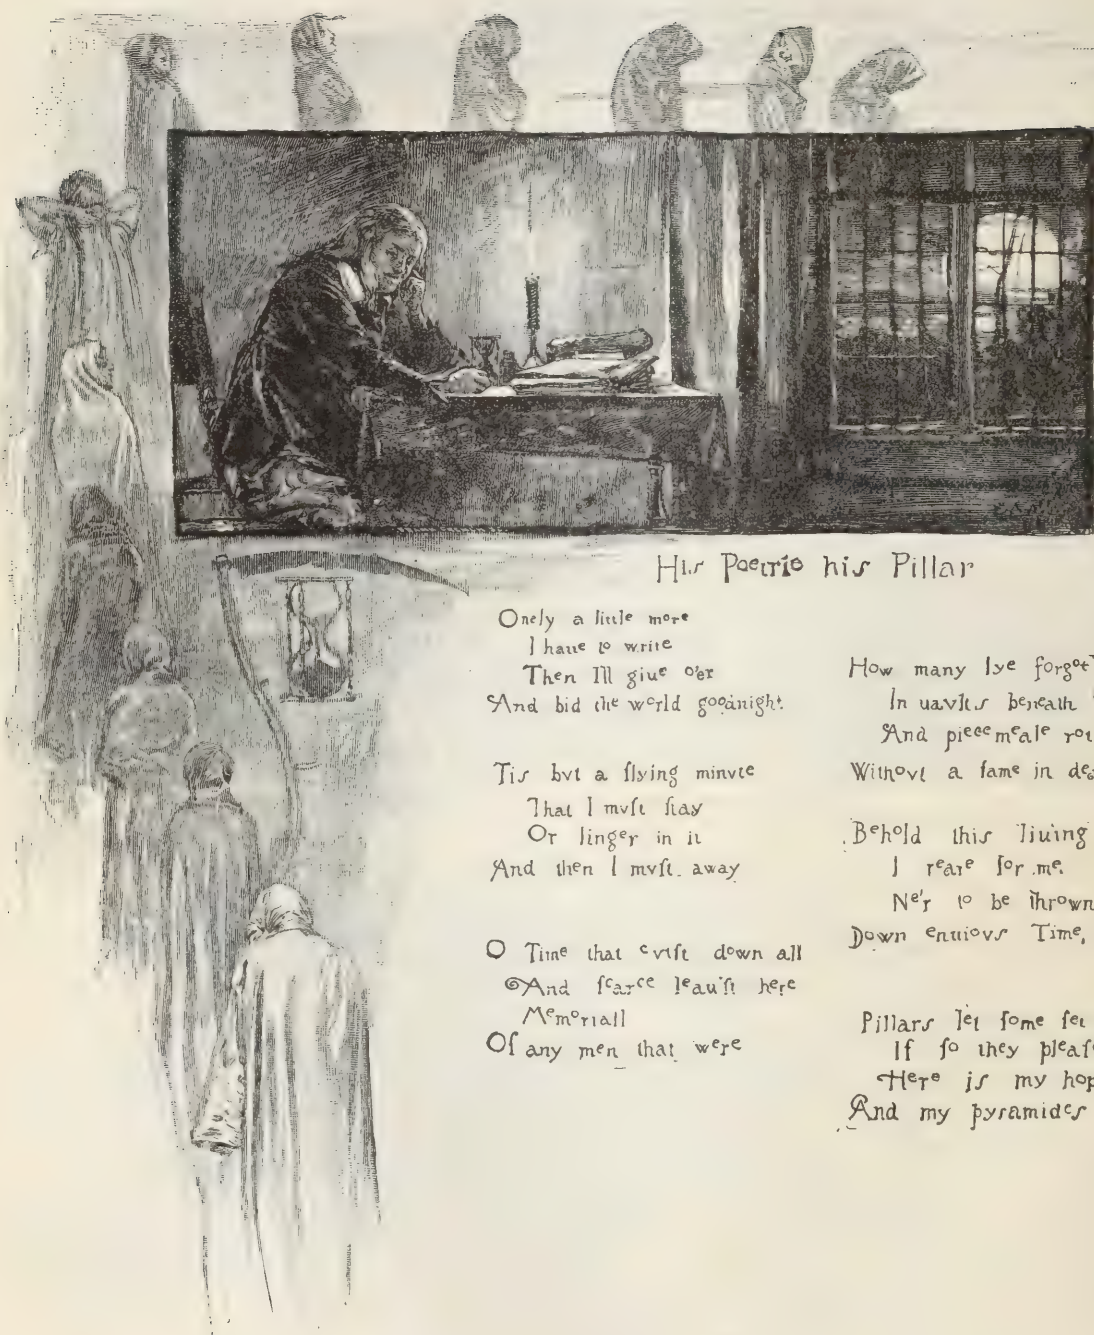 His Poetrie his Pillar
Onely a little more
I haue to write
Then Ill giue o'er
And bid the world goodnight.
Tis bvt a flying minvte
That I mvſt ſtay
Or linger in it
And then I mvſt away
O Time that cvtſt down all
And ſcarce leau'ſt here
Memoriall
Of any men that were
How many lye forgot
In uavlts beneath
And piecemeale rot
Withovt a fame in
Behold this liuing
I reare for me,
Ne'r to be thrown
Down enuiovs Time,
Pillars let ſome ſet
If ſo they pleaſe
Here is my
And my pyramides